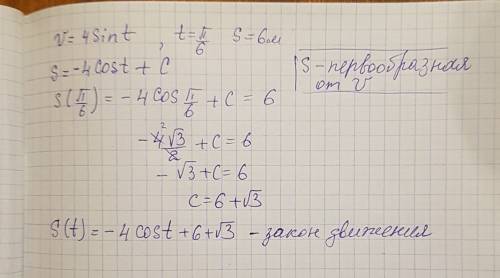 v = 4 sin t , t = π/6 S = 6 м
S = -4cost + C
S - первообразная
от v
S(π/6) = -4 cos π/6 + C = 6
-4²√3/2 + C = 6
-√3 + C = 6
C = 6 + √3
S(t) = -4 cost + 6 + √3 - закон движения